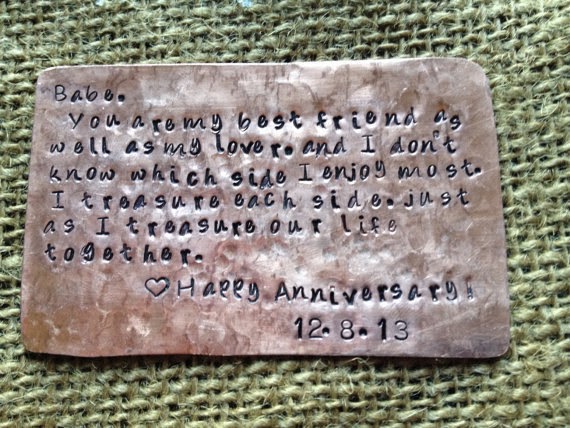 Babe.
You are my best friend as
well as my lover. and I don't
know which side I enjoy most.
I treasure each side. just
as I treasure our life
together.
♡Happy Anniversary!
12.8.13